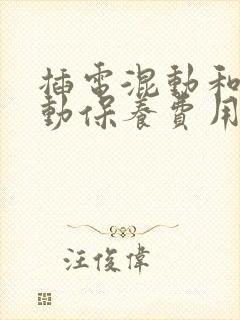 插電混動和
動保養費用
汪俊偉